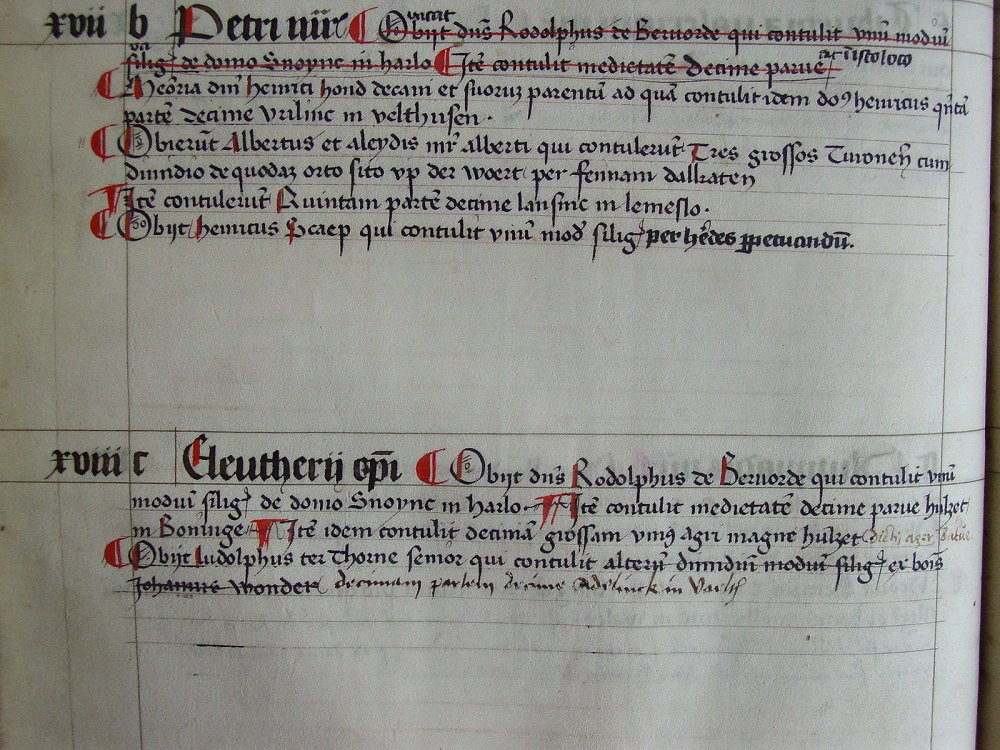 xvii b Petri Obijt dns Rodolphus de Bervorde qui contulit vnu modiu
silig de domo Snoync in harlo Ite contulit medietate decime parue
dni heinrici hond decani et suoruz parentu ad qua contulit idem heinricus
parte decime vrilinc in velthusen .
Obierut Albertus et aleydis alberti qui contulerut Tres grossos cum
dimidio de quodaz orto sito vp der woert per fennam dallraten
Ite contulerut Quintam parte decime lansinc in lemeslo .
Obijt heinricus Scaep qui contulit vnu mod silig per hedes ppetuandu .
xviii c Eleutherij epi Obijt dns Rodolphus de Bervorde qui contulit vnu
modiu silig de domo Snoync in harlo Ite contulit medietate decime parue hulzet
in Boninge Ite idem contulit decima grossam agri magne hulzet
Obijt Ludolphus ter Thorne senior qui contulit dimidiu modiu silig ex bois
Johannis wonder decimam partem decime in